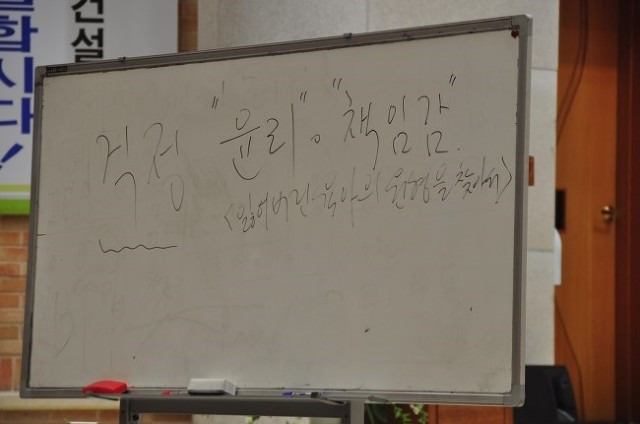 건설
합시다!
걱정 "윤리"。"책임감"
<잃어버린 육아의 원형을 찾아서>